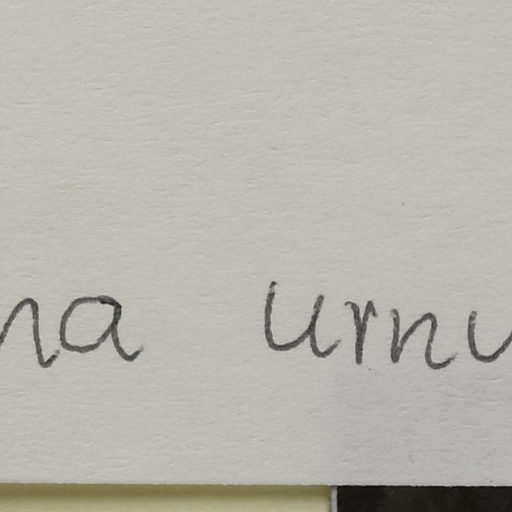 na urnu